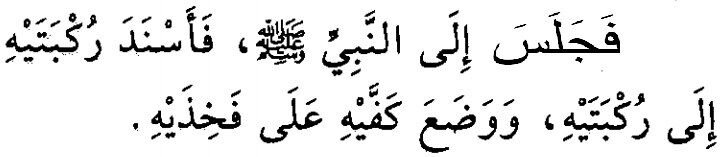 فَجَلَسَ إِلَى النَّبِيِّ ﷺ، فَأَسْنَدَ رُكْبَتَيْهِ
إِلَى رُكْبَتَيْهِ، وَوَضَعَ كَفَّيْهِ عَلَى فَخِذَيْهِ.